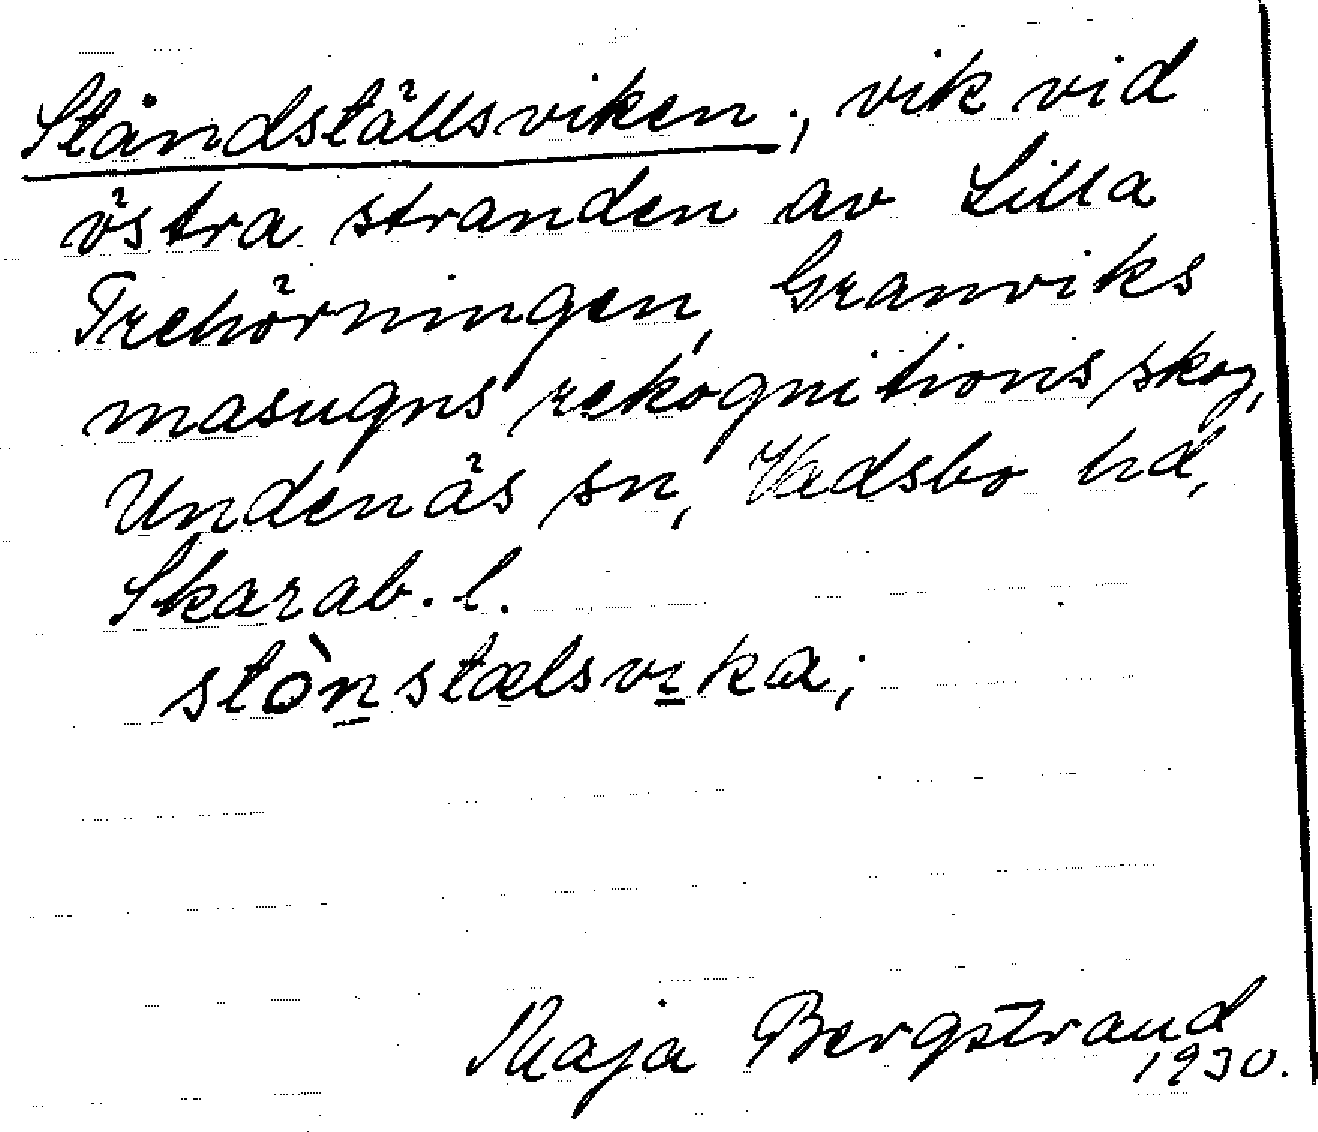 Ståndställsviken, vik vid
östra stranden av Lilla
Trehörningen, Granviks
masugns rekognitionsskog,
Undenäs sn, Vadsbo hd,
Skarab. l.
stònstælsvika;
Maja Bergstrand
1930.